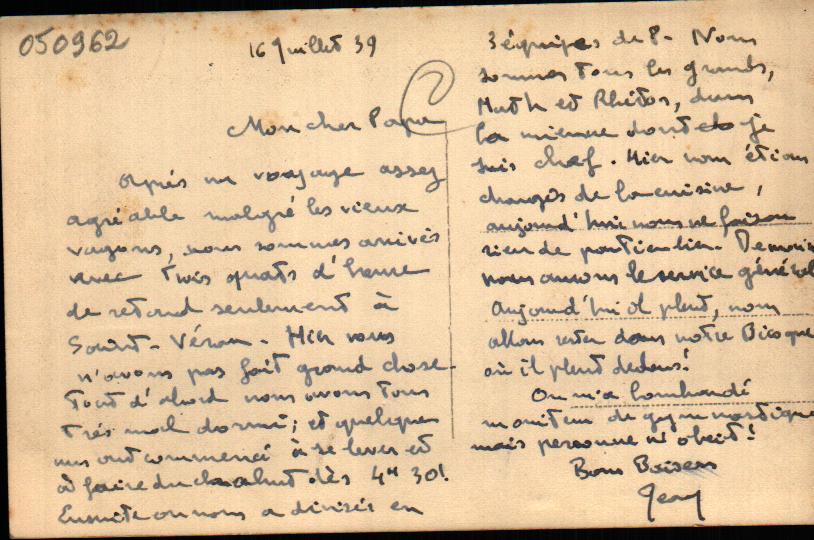 050962
16 Juillet 39
Mon cher Papa
Après un voyage assez
agréable malgré les vieux
wagons, nous sommes arrivés
avec trois quats d'heure
de retard seulement à
Saint-Véran. Hier nous
n'avons pas fait grand chose.
Tout d'abord nous avons tous
très mal dormi; et quelques
uns ont commencé à se lever et
à faire du chahut dès 4H 30!
Ensuite on nous a divisés en
3 équipes de 8. Nous
sommes tous les grands,
Math et Rhétos, dans
la mienne dont je
suis chef. Hier nous étions
chargés de la cuisine,
aujourd'hui nous ne faisons
rien de particulier. Demain
nous aurons le service général
Aujourd'hui il pleut, nous
allons rester dans notre Bicoque
où il pleut dedans!
On m'a bombardé
moniteur de gymnastique
mais personne n'obéit!
Bons Baisers
Jean